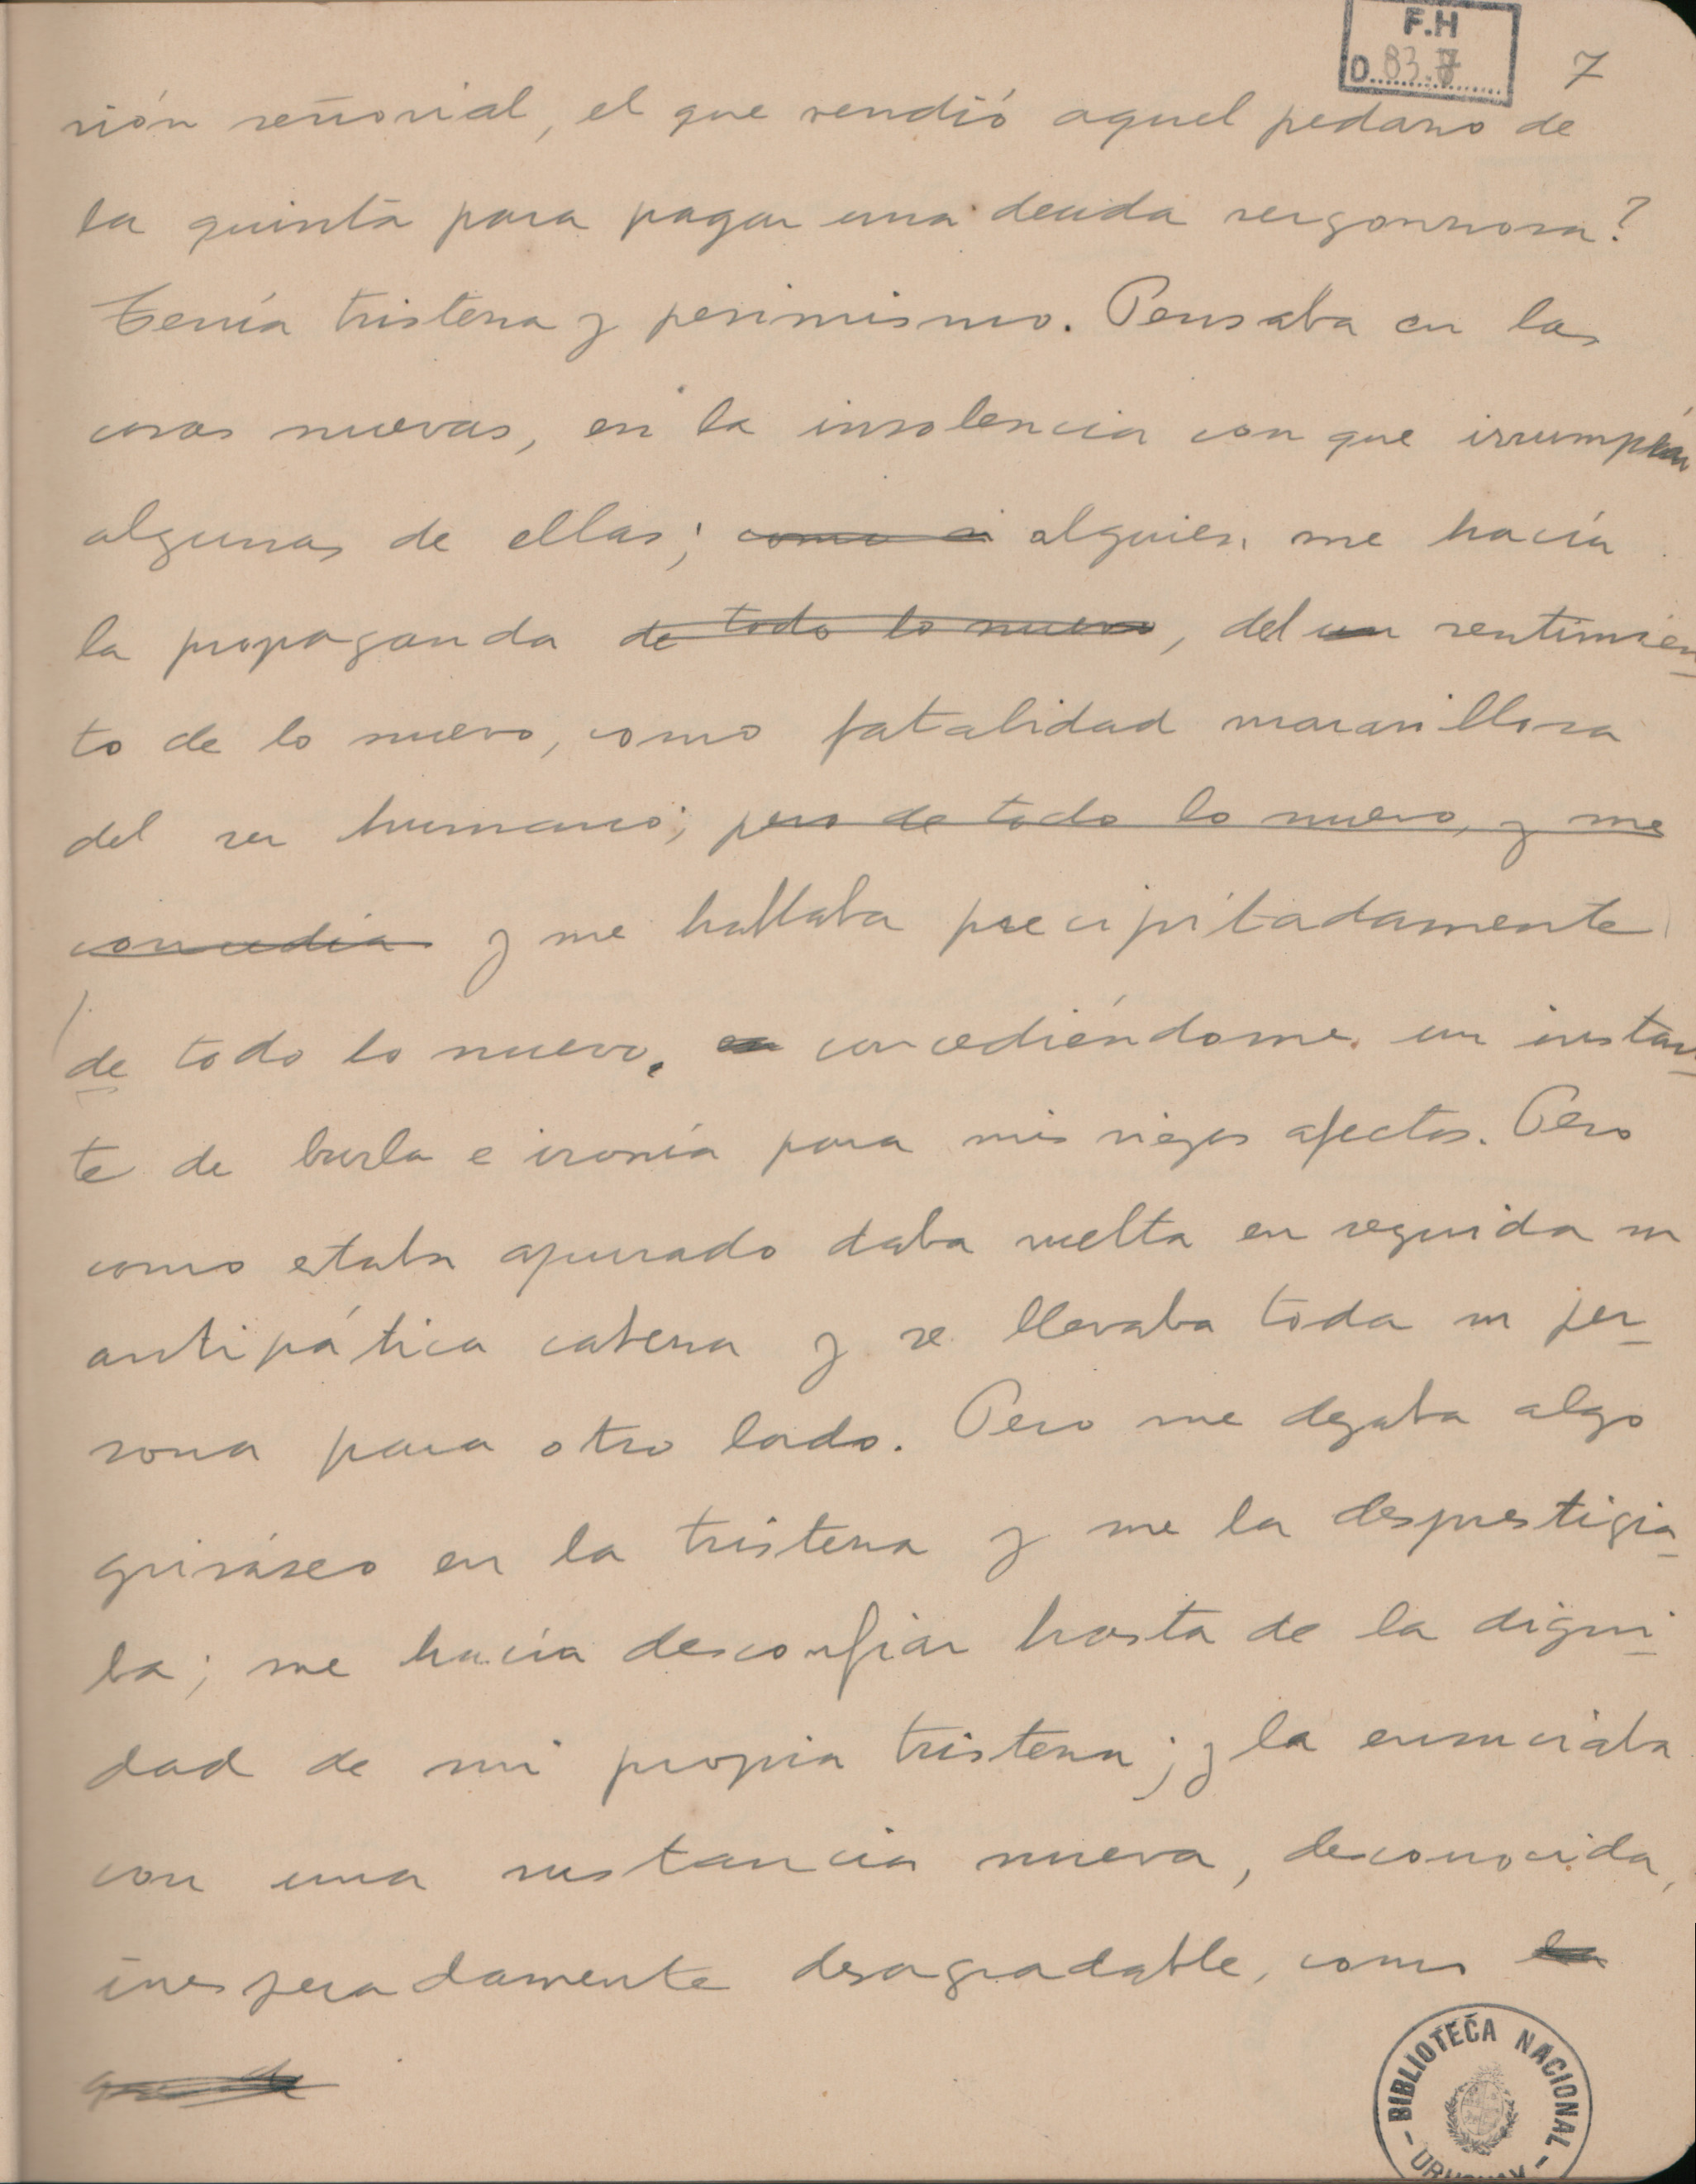 F.H
D. 83.7
7
sión señorial, el que vendió aquel pedazo de
la quinta para pagar una deuda vergonzosa?
Tenía tristeza y pesimismo. Pensaba en las
cosas nuevas, en la insolencia con que irrumpían
algunas de ellas; como si alguien me hacía
la propaganda de todo lo nuevo, del un sentimien-
to de lo nuevo, como fatalidad maravillosa
del ser humano; pero de todo lo nuevo, y me
concedía y me hablaba precipitadamente
de todo lo nuevo, concediéndome un instan-
te de burla e ironía para mis viejos afectos. Pero
como estaba apurado daba vuelta en seguida su
antipática cabeza y se llevaba toda su per-
sona para otro lado. Pero me dejaba algo
grisáseo en la tristeza y me la desprestigia-
ba; me hacía desconfiar hasta de la digni-
dad de mi propia tristeza; y la ensuciaba
con una sustancia nueva, desconocida,
inesperadamente desagradable, como
BIBLIOTECA NACIONAL
- URUGUAY -